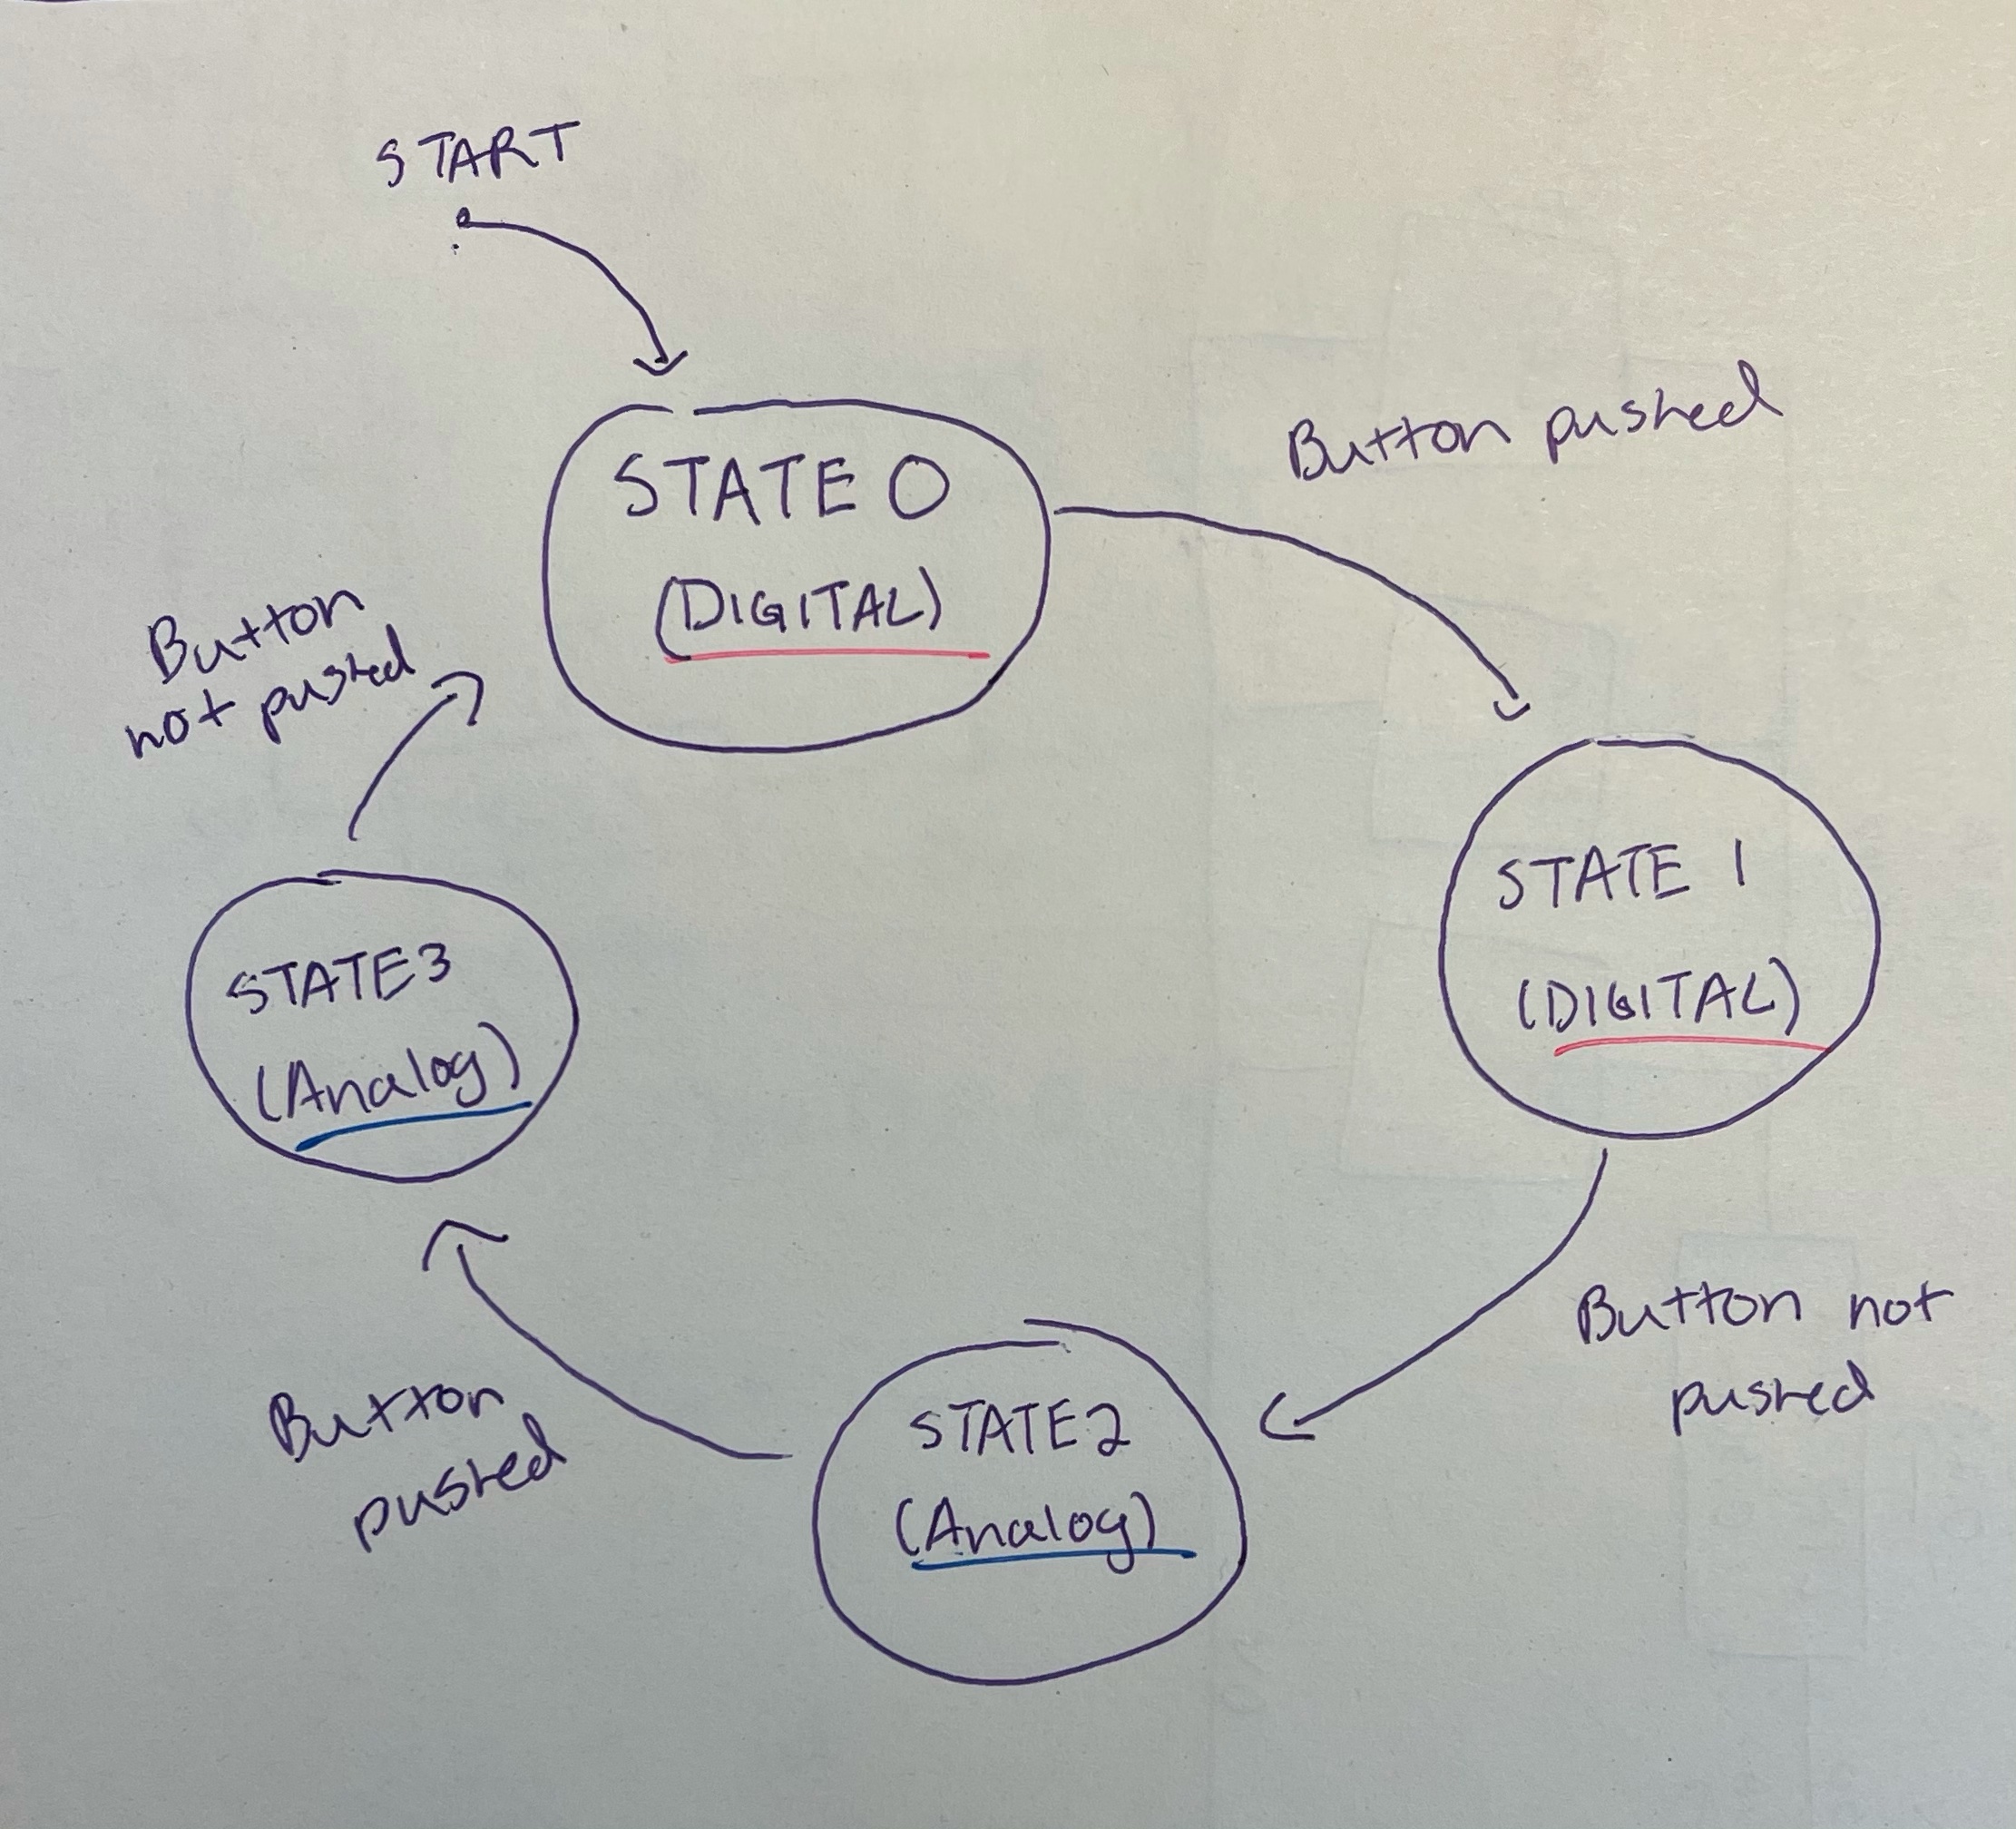 START
STATE 0
(DIGITAL)
Button pushed
STATE 1
(DIGITAL)
Button not
pushed
STATE2
(Analog)
Button
pushed
STATE3
(Analog)
Button
not pushed